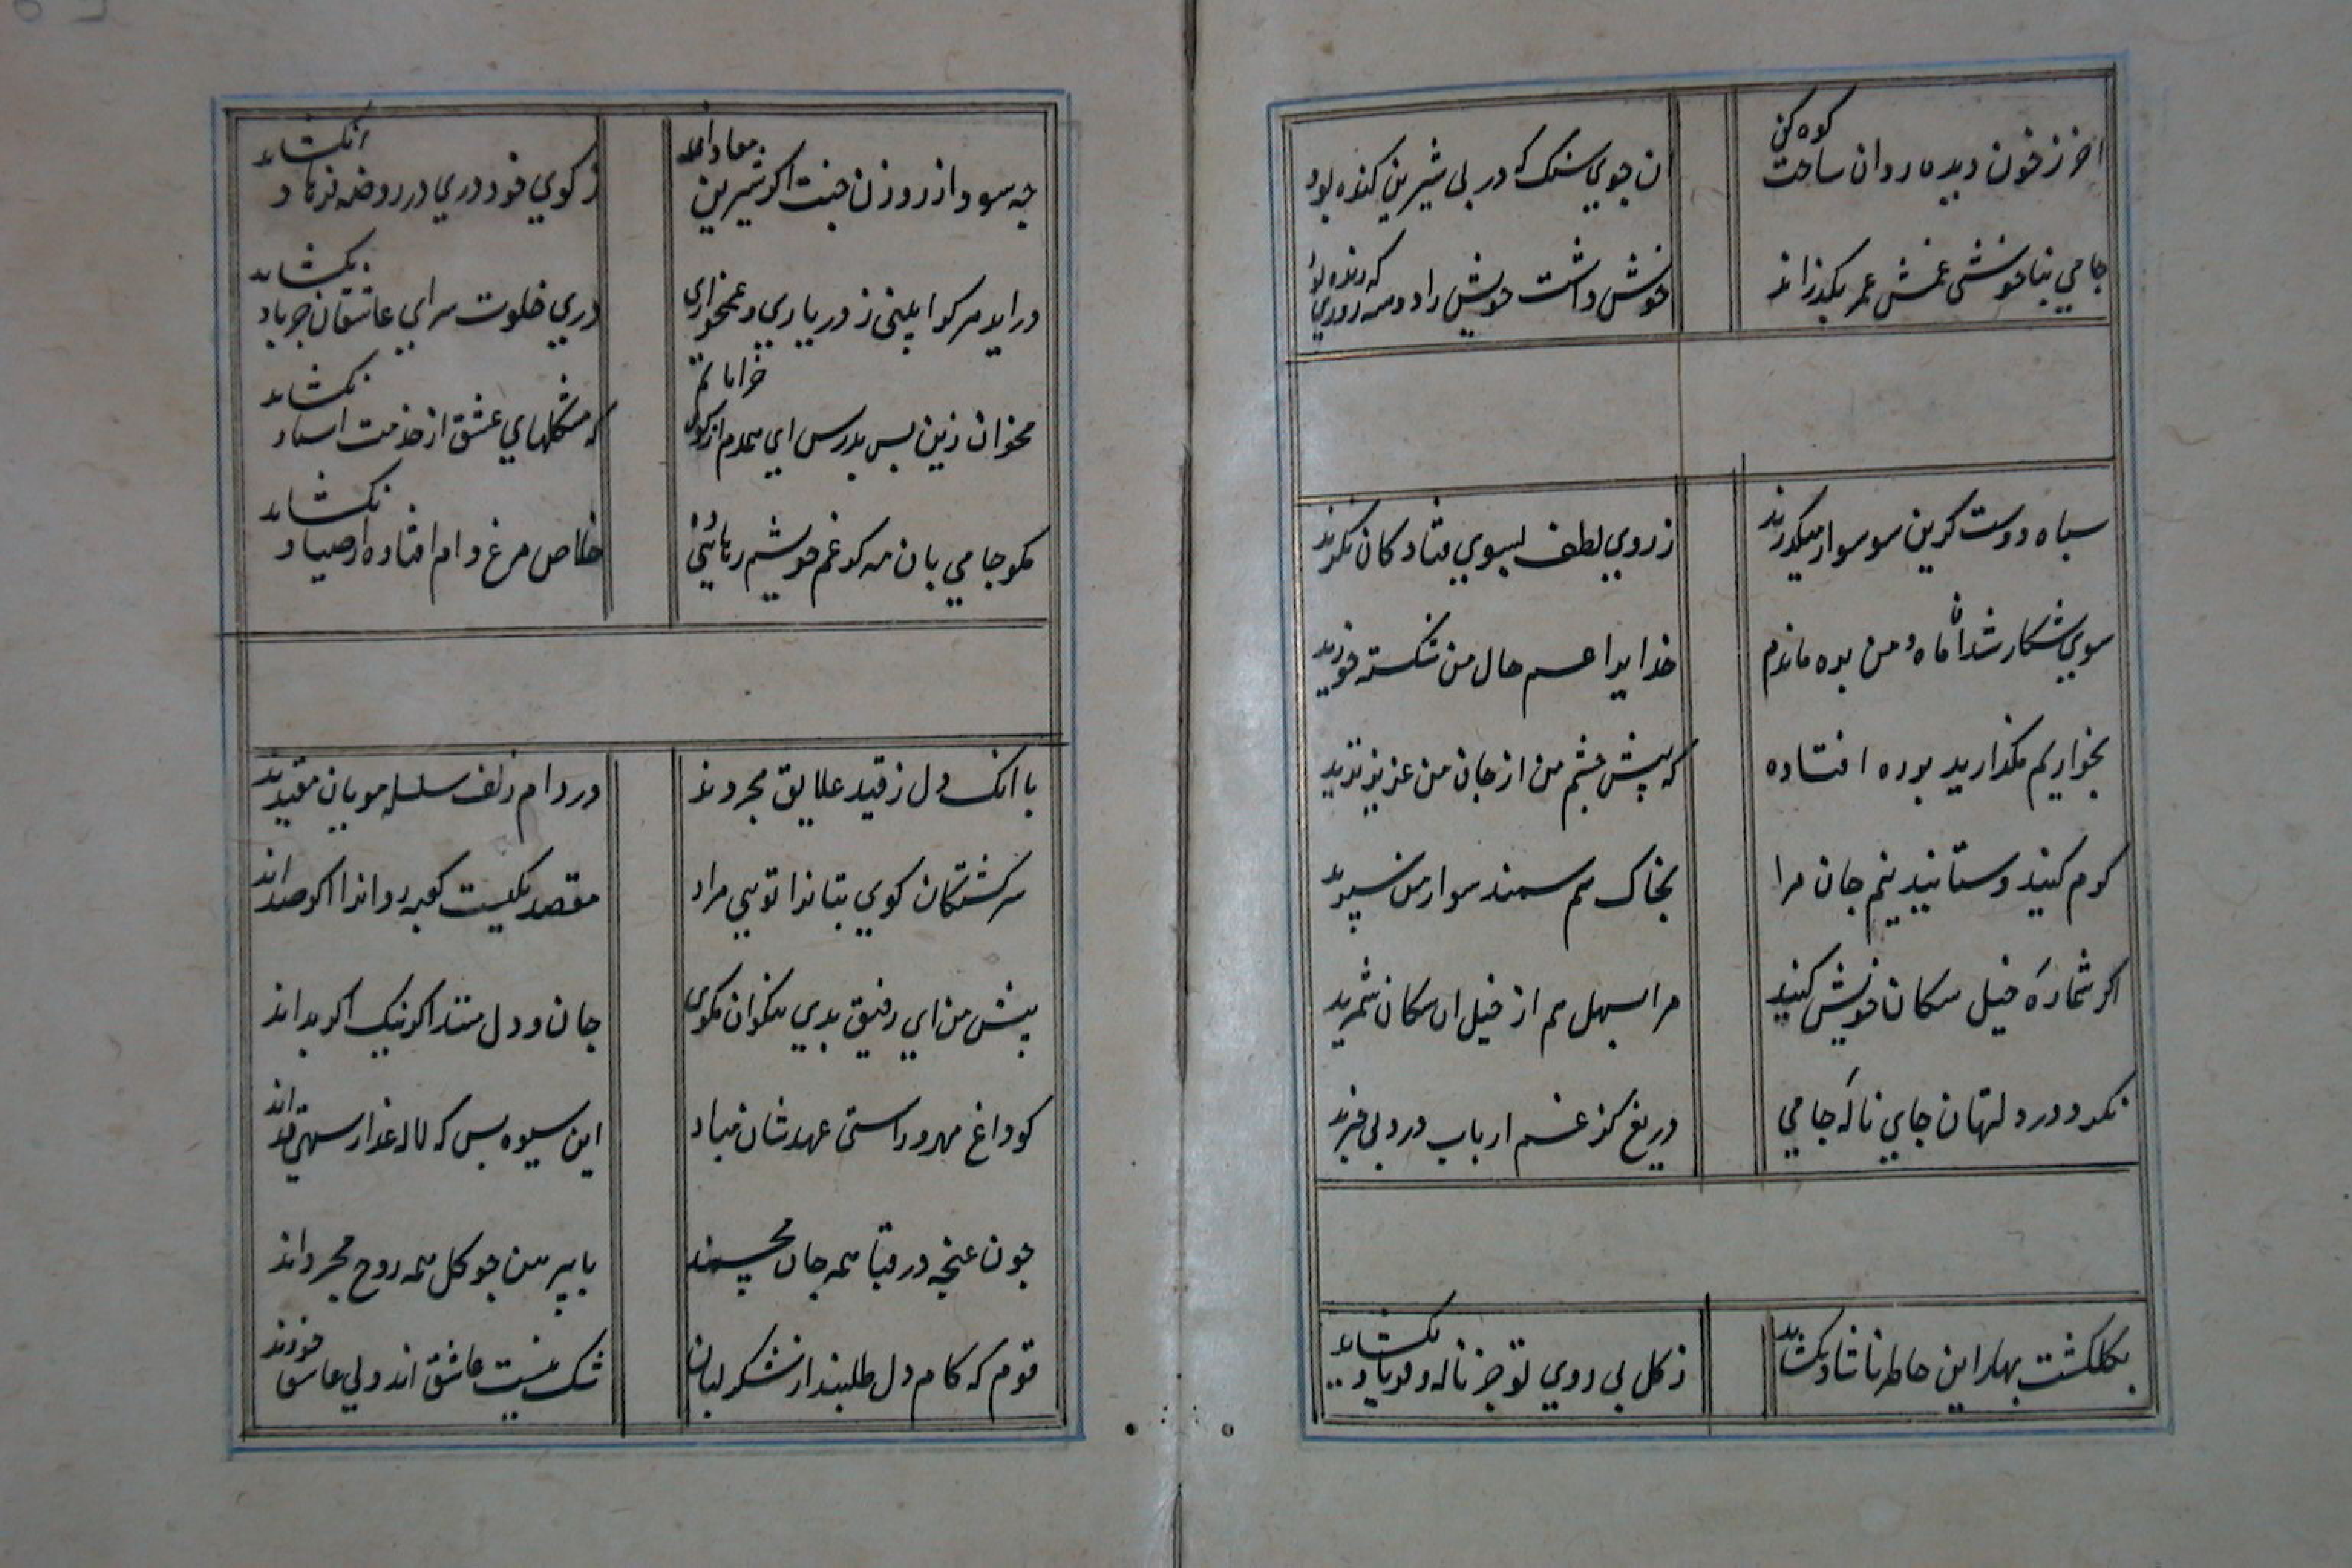 اخر ز خون دیده روان ساخت کوه کن
ان جوي سنک که در پی شیرین کنده بود
جامي بناخوشی غمش عمر بکذراند
خوش داشت خویش را دو سه روزي که زنده بود
سپاه دوست کزین سو سوار میکذرید
ز روي لطف بسوي فتادکان نکرید
سوي شکار شد ان ماه و من بره ماندم
خدایرا غم حال من شکسته خورید
بخواریم مکذارید بر ره افتاده
که پیش چشم من از جان من عزیزترید
کرم کنید و ستانید نیم جان مرا
بخاک سم سمند سوار من سپرید
اکر شماره خیل سکان خویش کنید
مرا بسهل هم از خیل ان سکان شمرید
نکرد در دلتان جاي ناله جامي
دریغ کز غم ارباب درد بی خبرید
بکلکشت بهار این خاطر ناشاد نکشاید
ز کل بی روي تو جز ناله و فریاد نکشاید
چه سود از روزن جنت اکر شیرین معاذ الله
ز کوي خود دري در روضه فرهاد نکشاید
در اید هر کرا بینی ز در یاري و غمخواري
دري خلوت سراي عاشقان جز باد نکشاید
مخوان زین پس بدرس اي همدم از کوي خراباتم
که مشکلهاي عشق از خدمت استاد نکشاید
مکو جامي بان مه کز غم خویشم رهائي ده
خلاص مرغ دام افتاده از صیاد نکشاید
با انک دل ز قید علایق مجردند
در دام زلف سلسله مویان مقیدند
سرکشتکان کوي بتانرا تویي مراد
مقصد یکیست کعبه روانرا اکر صدند
پیش من اي رفیق بدي نیکوان مکوي
جان و دل منند اکر نیک اکر بدند
کو داغ مهر و راستی عهدشان مباد
این شیوه بس که لاله عذار سهی قدند
چون غنچه در قبا همه جان مجسمند
با پیرهن چو کل همه روح مجردند
قوم که کام دل طلبند از شکر لبان
شک نیست عاشق اند ولي عاشق خودند